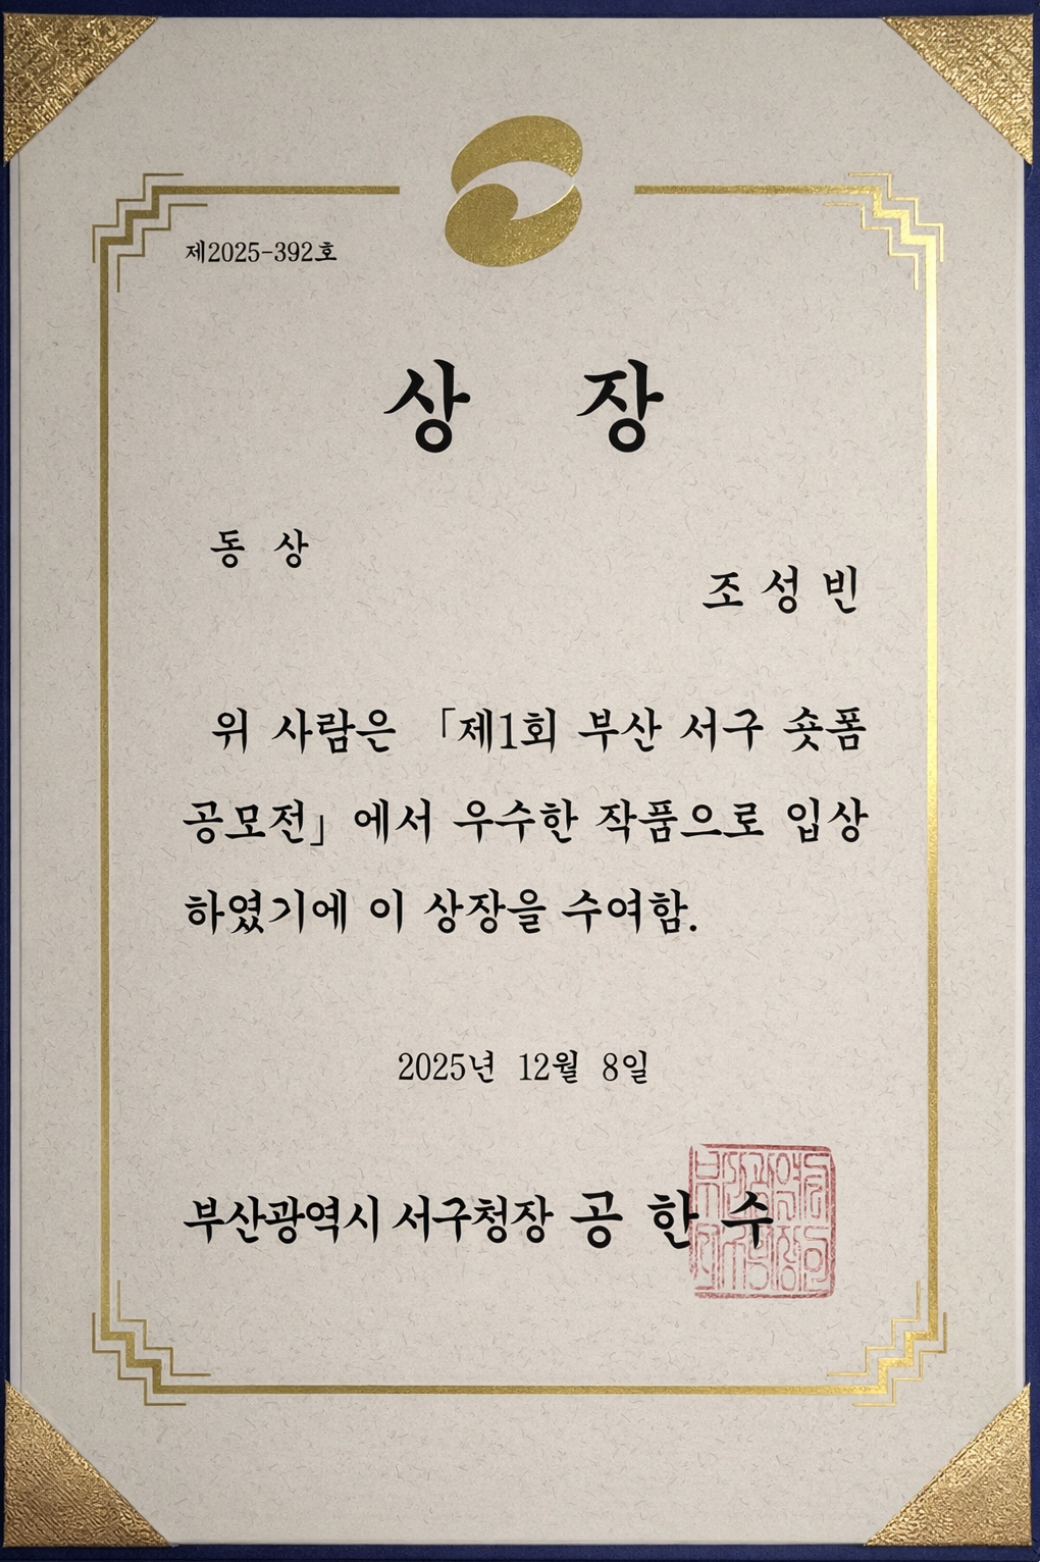 제2025-392호
상 장
동 상
조 성 빈
위 사람은 「제1회 부산 서구 숏폼
공모전」에서 우수한 작품으로 입상
하였기에 이 상장을 수여함.
2025년 12월 8일
부산광역시 서구청장 공 한 수